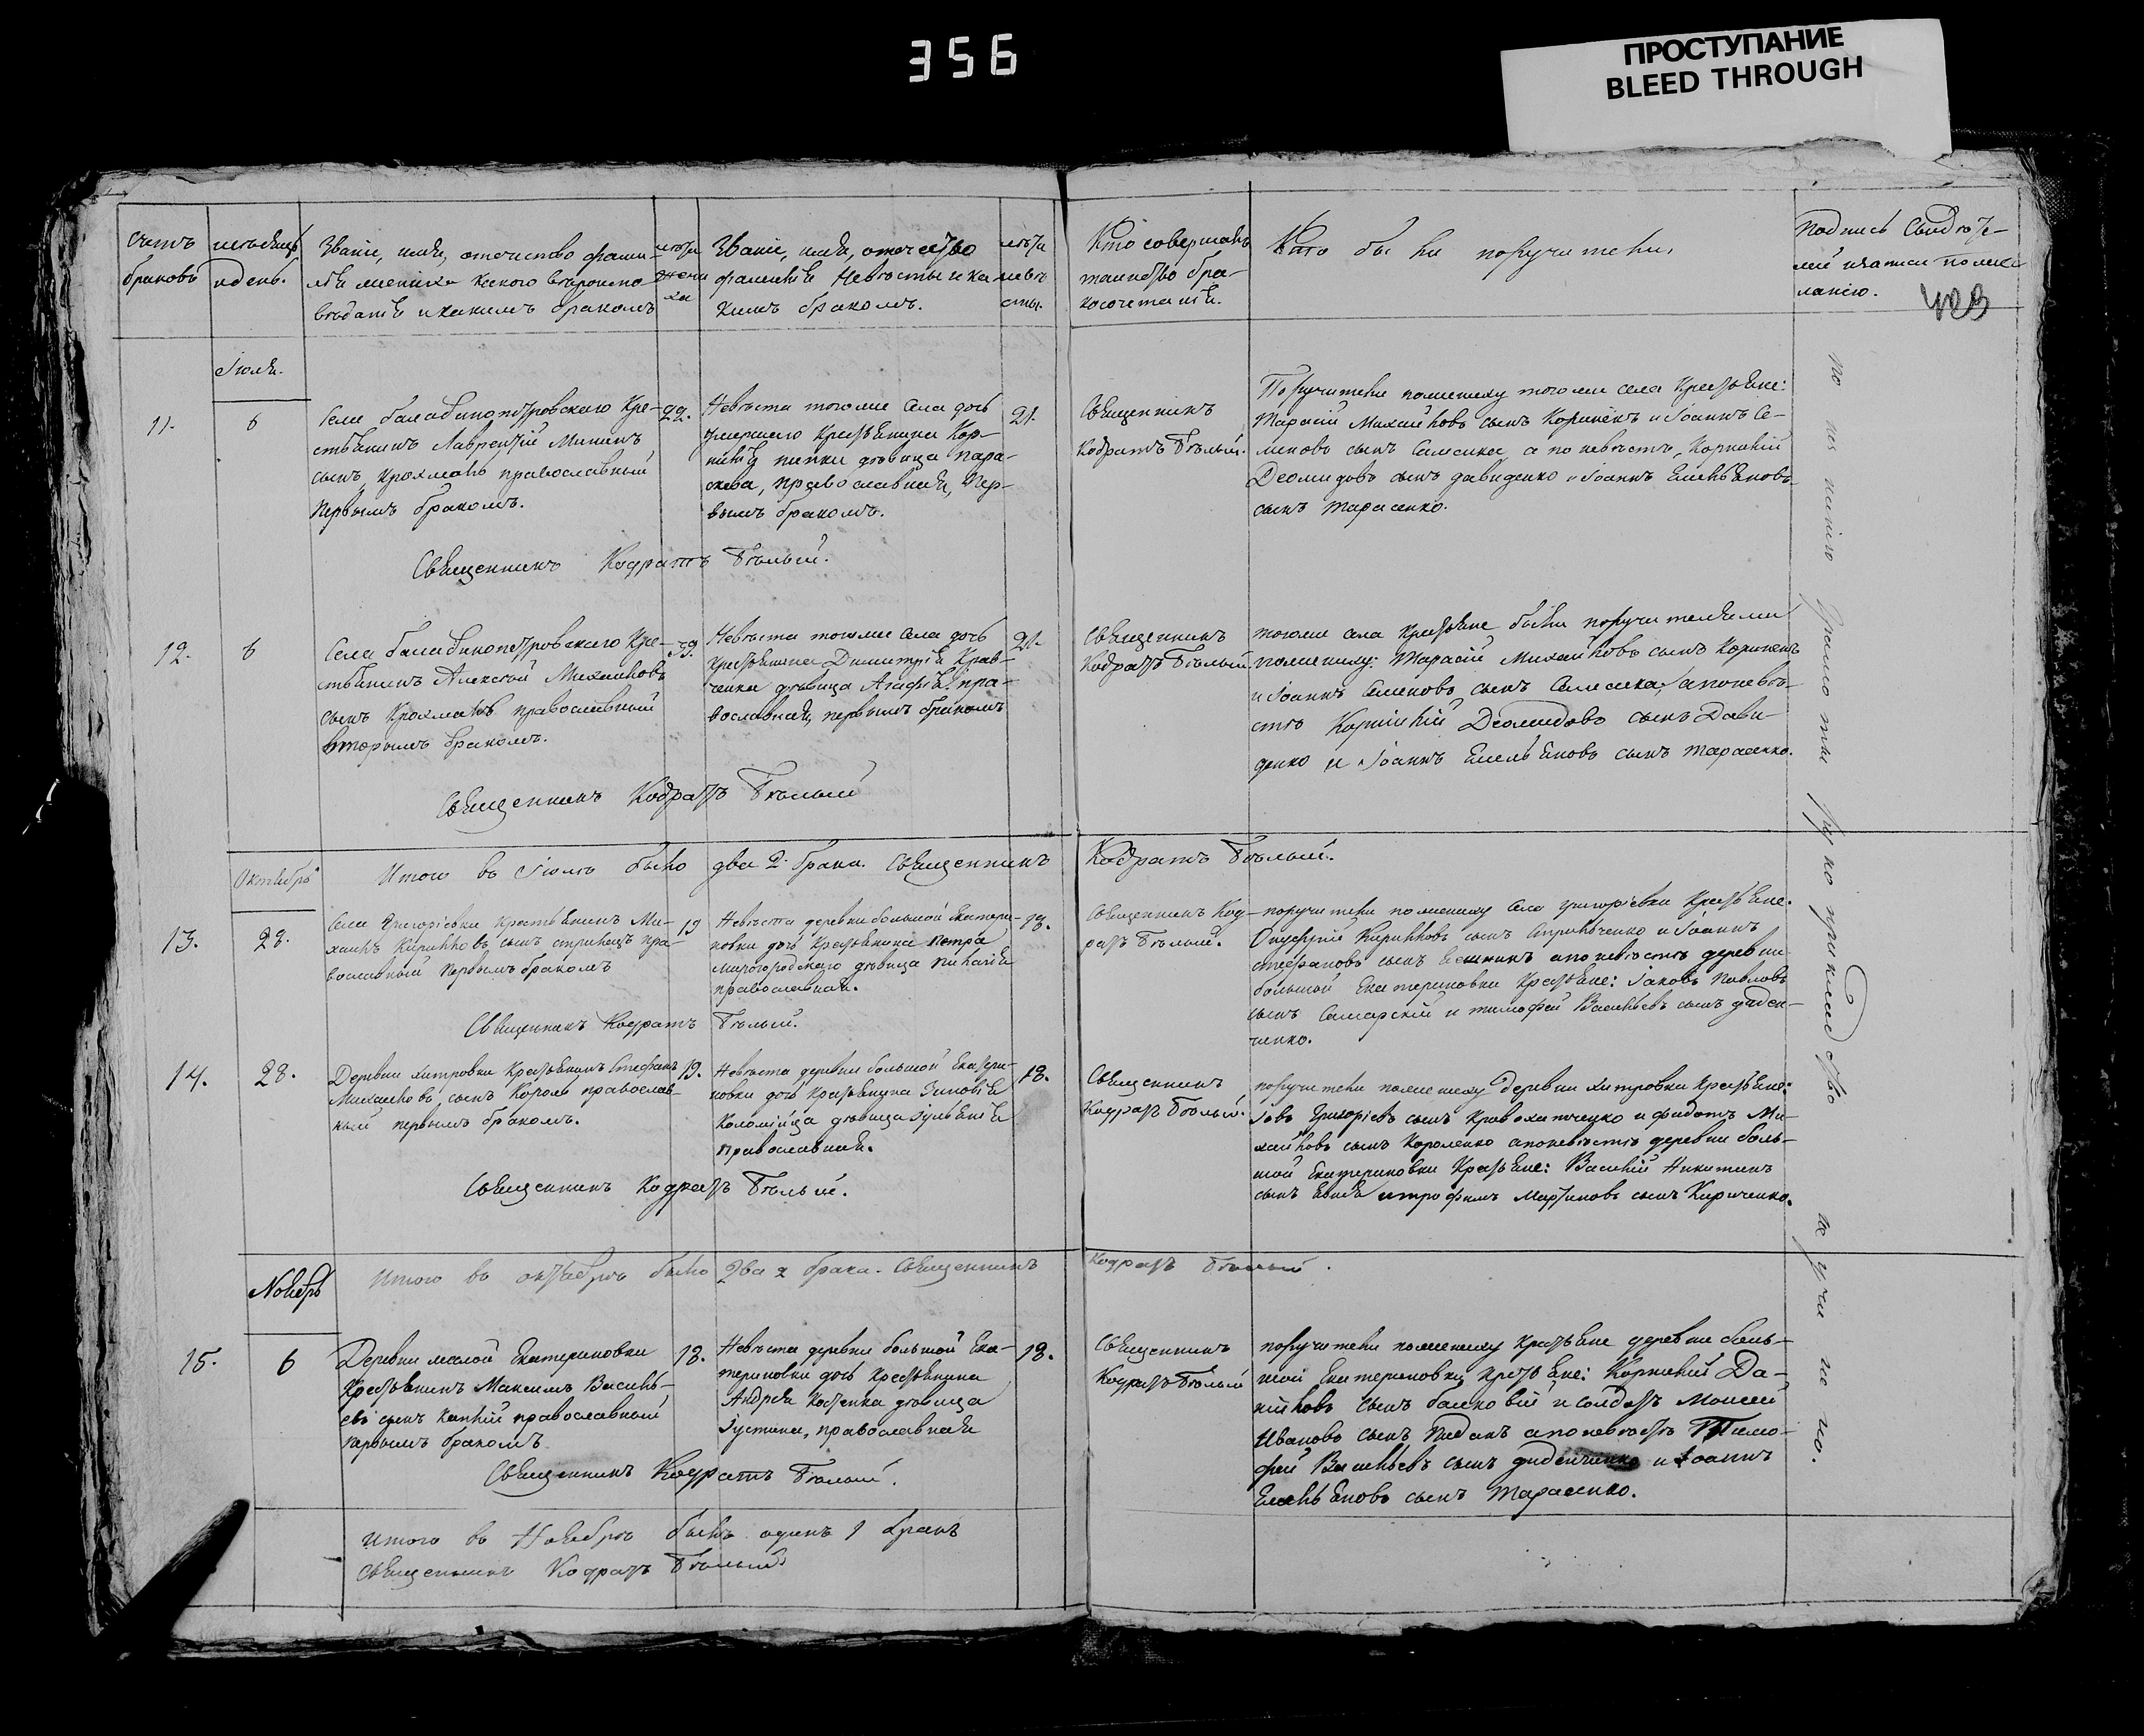 356
ПРОСТУПАНИЕ
BLEED THROUGH
Счетъ браковъ
месяцъ и день.
Званіе, имя, отечество фами-
лія жениха какого вѣроиспо-
вѣданія и какимъ бракомъ
лѣта жени
ха
Званіе, имя, отечество
фамилія Невѣсты и ка
кимъ бракомъ.
лѣта
невѣ
сты.
Кто совершалъ
таинство бра-
косочетанія.
Кто были поручители,
Подпись Свидѣте-
лей
ланію.
423
Іюля.
11.
6
Села балабинопетровскаго Кре-
стьянинъ Лаврентій Мининъ
сынъ Крохмаль православный
первымъ бракомъ.
22.
Невѣста тогоже села дочь
умершаго Крестьянина Кор-
нилія пипки дѣвица Пара-
скева, православная, пер-
вымъ бракомъ.
21.
Священникъ
Кодратъ Бѣлый.
Поручители по жениху тогоже села Крестьяне:
Тарасій Михайловъ сынъ Коринекъ и Іоаннъ Се-
меновъ сынъ Самсика, а по невѣстѣ, Корнилій
Деомидовъ сынъ Давиденко и Іоаннъ Емельяновъ
сынъ Тарасенко.
Священникъ Кодратъ Бѣлый.
12.
6
Села балабинопетровскаго Кре-
стьянинъ Алексѣй Михайловъ
сынъ Крохмаль православный
вторымъ бракомъ.
39.
Невѣста тогоже села дочь
крестьянина Димитрія Крав-
ченка дѣвица Агафія пра-
вославная, первымъ бракомъ
21.
Священникъ
Кодратъ Бѣлый.
тогоже села крестьяне были поручителями
по жениху: Тарасій Михайловъ сынъ Коринекъ
и Іоаннъ Семеновъ сынъ Самсика, а по невѣ-
стѣ Корнилій Деомидовъ сынъ Дави-
денко и Іоаннъ Емельяновъ сынъ Тарасенко.
Священникъ Кодратъ Бѣлый
Итого въ Іюлѣ было два 2. брака. Священникъ Кодратъ Бѣлый.
Октябрь
13.
28.
Села Григоріевки Крестьянинъ Ми-
хаилъ Кирилловъ сынъ Стрилецъ пра-
вославный первымъ бракомъ
19
Невѣста деревни большой Екатери-
новки дочь Крестьянина Петра
Миргородскаго дѣвица Пелагія
православная.
18.
Священникъ Код-
ратъ Бѣлый.
поручители по жениху села Григоріевки Крестьяне.
Онуфрій Кирилловъ сынъ Стрильченко и Іоаннъ
Стефановъ сынъ а по невѣстѣ деревни
большой Екатериновки Крестьяне: Іаковъ Павловъ
сынъ Самарскій и Тимофей Васильевъ сынъ Диден-
ченко.
Священникъ Кодратъ Бѣлый.
14.
28.
Деревни хитровки Крестьянинъ Стефанъ
Михайловъ сынъ Король православ-
ный первымъ бракомъ.
19.
Невѣста деревни большой Екатери-
новки дочь Крестьянина Зиновія
Коломійца дѣвица Іуліанія
православная.
18.
Священникъ
Кодратъ Бѣлый.
поручители по жениху деревни хитровки Крестьяне:
Іовъ Григоріевъ сынъ и Филатъ Ми-
хайловъ сынъ Короленко а по невѣстѣ деревни боль-
шой Екатериновки Крестьяне: Василій Никитинъ
сынъ и Трофимъ Мартиновъ сынъ Кириченко.
Священникъ Кодратъ Бѣлый.
Итого въ октябрѣ было два 2 брака. Священникъ Кодратъ Бѣлый.
Ноябрь
15.
6
Деревни малой Екатериновки
Крестьянинъ Максимъ Василь-
евъ сынъ православный
первымъ бракомъ
18.
Невѣста деревни большой Ека-
териновки дочь Крестьянина
Андрея Костенка дѣвица
Іустина, православная
18.
Священникъ
Кодратъ Бѣлый
поручители по жениху крестьяне деревни боль-
шой Екатериновки Крестьяне: Корнилій Да-
ніиловъ сынъ и солдатъ Моисей
Ивановъ сынъ а по невѣстѣ Тимо-
фей Васильевъ сынъ Диденченко и Іоаннъ
Емельяновъ сынъ Тарасенко.
Священникъ Кодратъ Бѣлый.
Итого въ Ноябрѣ былъ одинъ 1 бракъ
Священникъ Кодратъ Бѣлый
грамоты рукоприкладство неучинено.